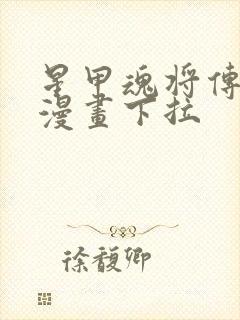 星甲魂将傳
漫畫下拉
徐馥卿